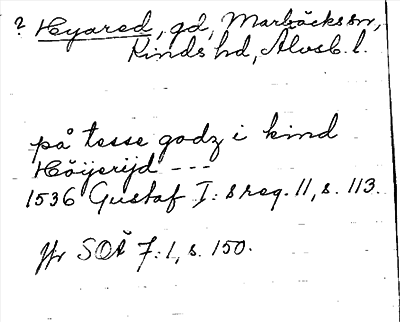 ? Hyared, gd, Marbäcks sn,
Kinds hd, Älvsb. l.
på tesse godz i kind
Höijerijd ---
1536 Gustaf I:s reg. 11, s. 113.
Jfr SOÄ 7:1, s. 150.